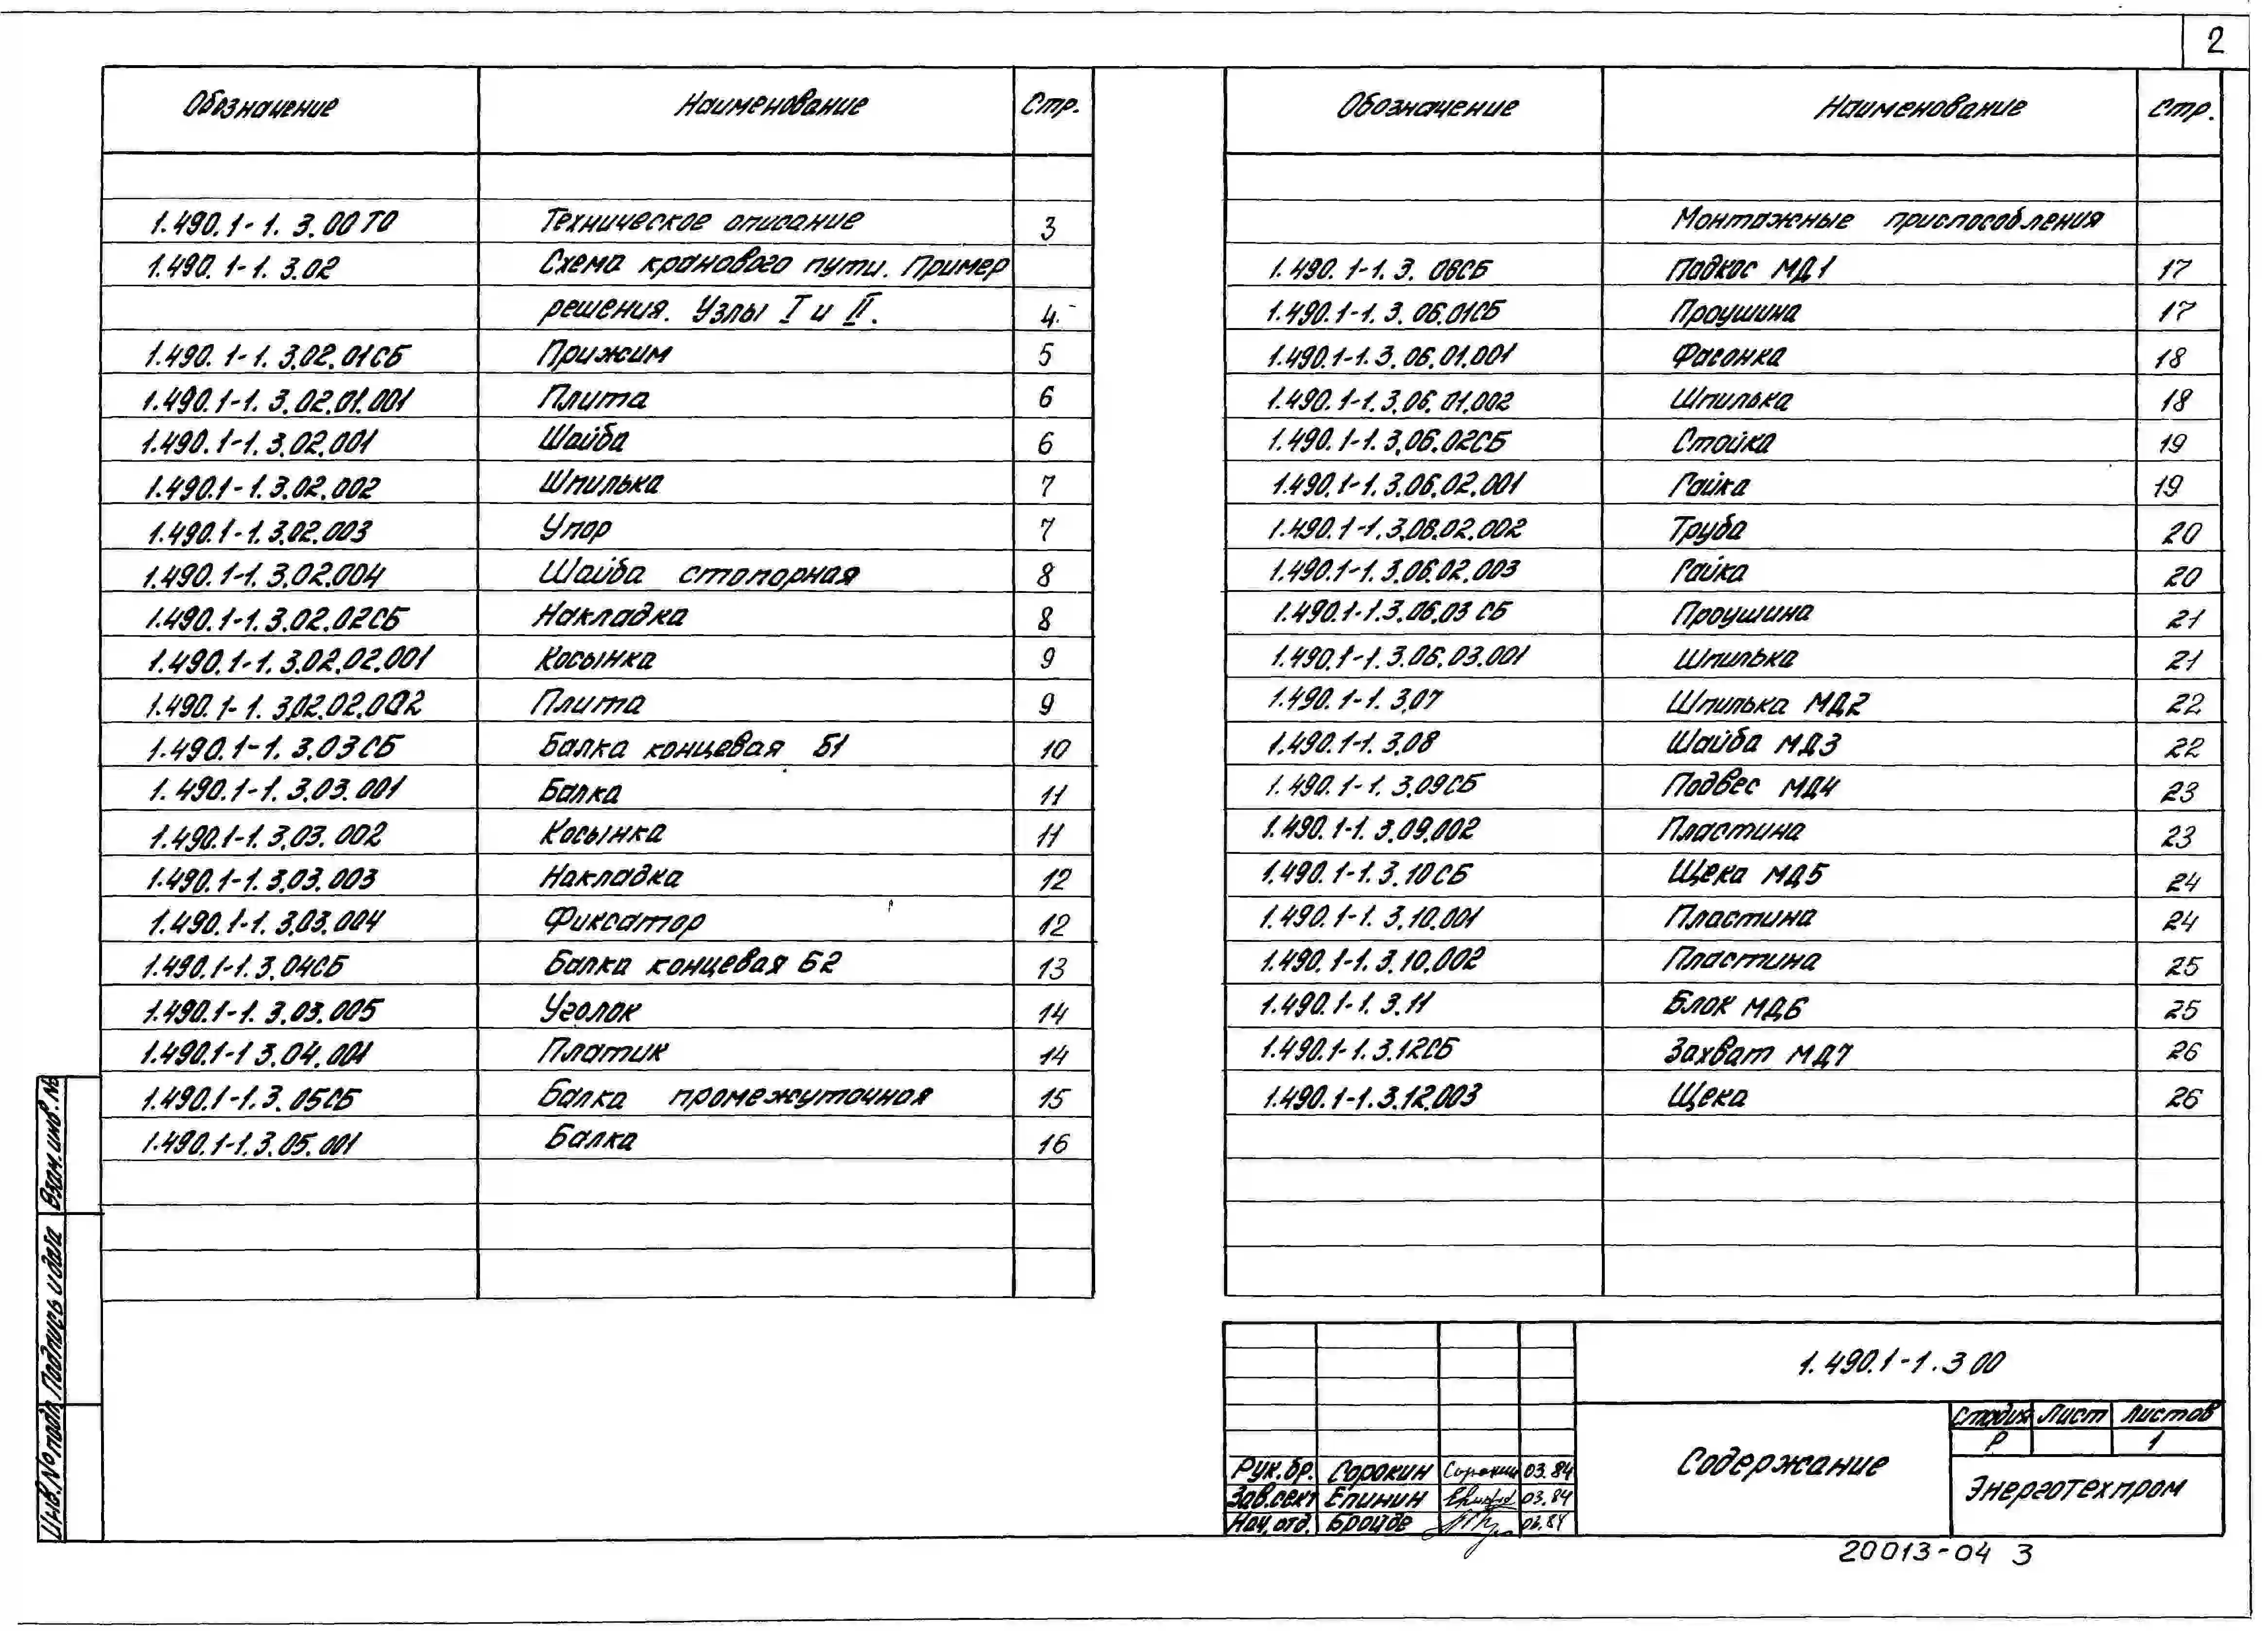 2
Обозначение Наименование Стр.
1.490.1-1. 3.00ТО Техническое описание 3
1.490. 1-1. 3.02 Схема кранового пути. Пример
решения. Узлы I и II. 4
1.490. 1-1. 3.02.01СБ Прижим 5
1.490.1-1. 3.02.01.001 Плита 6
1.490. 1-1. 3.02.001 Шайба 6
1.490.1-1.3.02.002 Шпилька 7
1.490.1-1.3.02.003 Упор 7
1.490.1-1. 3.02.004 Шайба стопорная 8
1.490.1-1.3.02.02СБ Накладка 8
1.490.1-1. 3.02.02.001 Косынка 9
1.490. 1-1. 3.02.02.002 Плита 9
1.490.1-1. 3.03СБ Балка концевая Б1 10
1. 490.1-1. 3.03.001 Балка 11
1.490.1-1.3.03. 002 Косынка 11
1.490.1-1.3.03.003 Накладка 12
1.490.1-1. 3.03.004 Фиксатор 12
1.490.1-1.3.04СБ Балка концевая Б2 13
1.490.1-1. 3.03.005 Уголок 14
1.490.1-1 3.04.001 Платик 14
1.490.1-1.3. 05СБ Балка промежуточная 15
1.490.1-1.3.05.001 Балка 16
Обозначение Наименование Стр.
Монтажные приспособления
1. 490. 1-1. 3. 06СБ Подкос МД1 17
1.490.1-1. 3. 06.01СБ Проушина 17
1.490.1-1.3.06.01.001 Фасонка 18
1.490.1-1.3.06.01.002 Шпилька 18
1.490.1-1.3.06.02СБ Стойка 19
1.490.1-1.3.06.02.001 Гайка 19
1.490.1-1.3.06.02.002 Труба 20
1.490.1-1.3.06.02.003 Гайка 20
1.490.1-1.3.06.03 СБ Проушина 21
1.490.1-1.3.06.03.001 Шпилька 21
1.490.1-1. 3.07 Шпилька МД2 22
1.490.1-1. 3.08 Шайба МД3 22
1. 490.1-1. 3.09СБ Подвес МД4 23
1.490.1-1. 3.09.002 Пластина 23
1.490.1-1.3.10СБ Щека МД5 24
1.490.1-1. 3.10.001 Пластина 24
1.490.1-1.3.10.002 Пластина 25
1.490.1-1. 3.11 Блок МД6 25
1.490.1-1.3.12СБ Захват МД7 26
1.490.1-1.3.12.003 Щека 26
Взам.инв.№
Подпись и дата
Инв.№ подл.
1.490.1-1.3 00
Содержание
Стадия Лист Листов
Р 1
Энерготехпром
Рук.бр. Сорокин Сорокин 03.84
Зав.сект Епинин 03.84
Нач.отд. Бройде 03.84
20013-04 3